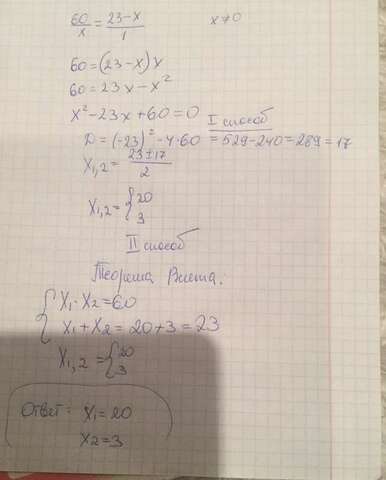 60/x = 23-x/1   x≠0
60=(23-x)x
60=23x-x²
x²-23x+60=0   I способ
D=(-23)²-4·60 =529-240=289=17
x₁,₂= 23±17/2
x₁,₂= { 20
3
II способ
Теорема Виета:
{ x₁·x₂=60
x₁+x₂=20+3=23
x₁,₂= { 20
3
Ответ: x₁=20
x₂=3